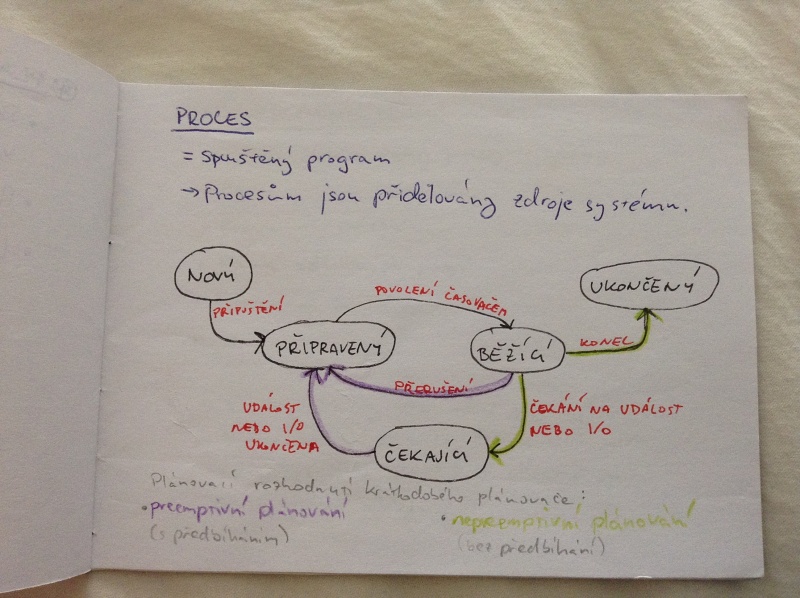 PROCES
= Spuštěný program
→ Procesům jsou přidělovány zdroje systému.
NOVÝ
UKONČENÝ
POVOLENÍ ČASOVAČEM
PŘIPUŠTĚNÍ
PŘIPRAVENÝ
BĚŽÍCÍ
KONEC
PŘERUŠENÍ
UDÁLOST
NEBO I/O
UKONČENA
ČEKÁNÍ NA UDÁLOST
NEBO I/O
ČEKAJÍCÍ
Plánovací rozhodnutí krátkodobého plánovače:
• preemptivní plánování
(s předbíháním)
• nepreemptivní plánování
(bez předbíhání)